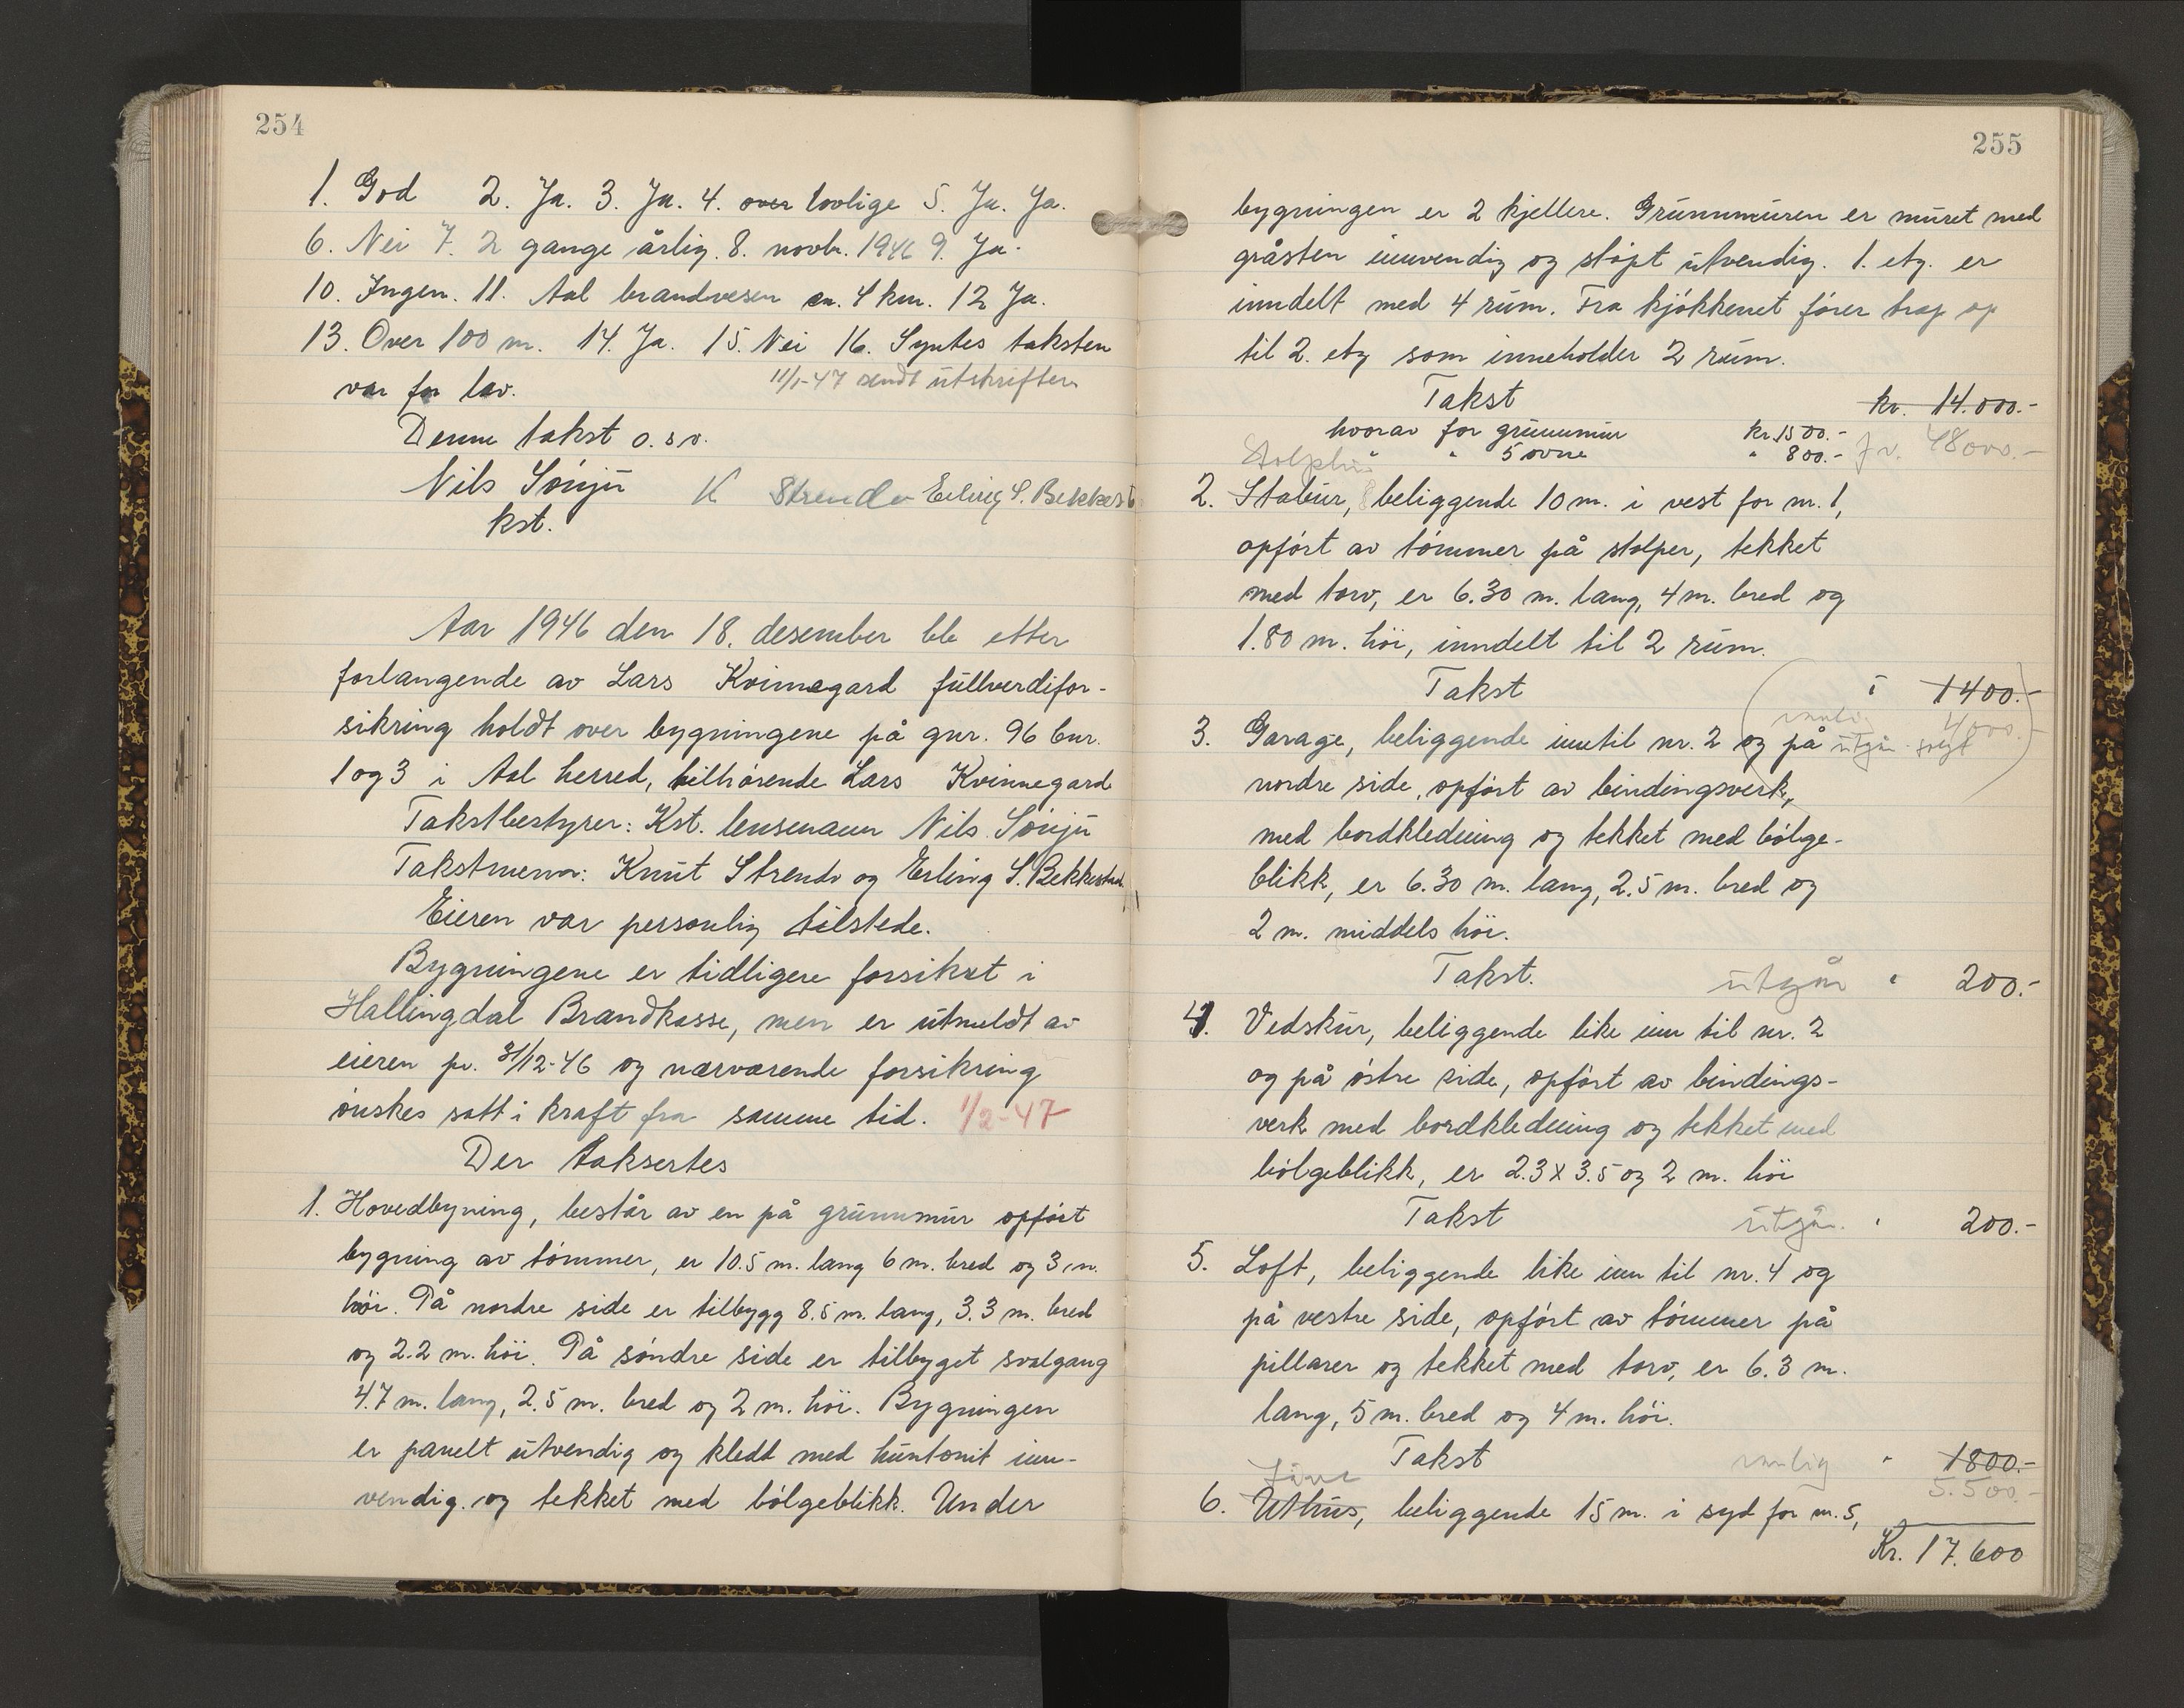 254
1. God 2. Ja. 3. Ja. 4. over lovlige 5. Ja. Ja.
6. Nei 7. 2 gange årlig. 8. novbr. 1946 9. Ja.
10. Ingen. 11. Aal brandvesen ca. 4 km. 12 Ja.
13. Over 100 m. 14. Ja. 15. Nei 16. Syntes taksten
var for lav. 11/1-47 sendt utskriften
Denne takst o.s.v.
Nils Sönju K Strende Erling S. Bekkest
kst.
Aar 1946 den 18. desember ble etter
forlangende av Lars Kvinnegard fullverdifor-
sikring holdt over bygningene på gnr. 96 bnr.
1 og 3 i Aal herred, tilhörende Lars Kvinnegard
Takstbestyrer: Kst. lensmann Nils Sönju
Takstmenn: Knut Strende og Erling S. Bekkestad
Eieren var personlig tilstede.
Bygningene er tidligere forsikret i
Hallingdal Brandkasse, men er utmeldt av
eieren pr. 31/12-46 og nærværende forsikring
önskes satt i kraft fra samme tid. 1/2-47
Der taksertes
1. Hovedbyning, består av en på grunnmur opfört
bygning av tömmer, er 10.5 m. lang 6 m. bred og 3 m.
höi. På nordre side er tilbygg 8.5 m. lang, 3.3 m. bred
og 2.2 m. höi. På söndre side er tilbyget svalgang
4.7 m. lang, 2.5 m. bred og 2 m. höi. Bygningen
er panelt utvendig og kledd med huntonit inn-
vendig. og tekket med bölgeblikk. Under
255
bygningen er 2 kjellere. Grunnmuren er muret med
gråsten innvendig og stöpt utvendig. 1. etg. er
inndelt med 4 rum. Fra kjökkenet förer trap op
til 2. etg som inneholder 2 rum.
Takst kr. 14.000.-
hvorav for grunnmur kr. 1500.-
" " 5 ovne " 800.- 48000.-
2. Stabur, beliggende 10 m. i vest for nr. 1,
opfört av tömmer på stolper, tekket
med torv, er 6.30 m. lang, 4 m. bred og
1.80 m. höi, inndelt til 2 rum.
Takst " 1400.-
4000.-
3. Garage, beliggende inntil nr. 2 og på utgår solgt
nordre side, opfört av bindingsverk,
med bordkledning og tekket med bölge-
blikk, er 6.30 m. lang, 2.5 m. bred og
2 m. middels höi.
Takst. utgår " 200.-
4. Vedskur, beliggende like inn til nr. 2
og på östre side, opfört av bindings-
verk med bordkledning og tekket med
bölgeblikk, er 2.3 x 3.5 og 2 m. höi
Takst utgår. " 200.-
5. Loft, beliggende like inn til nr. 4 og
på vestre side, opfört av tömmer på
pillarer og tekket med torv, er 6.3 m.
lang, 5 m. bred og 4 m. höi.
Takst " 1800.-
5.500.-
6. Uthus, beliggende 15 m. i syd for nr. 5,
Kr. 17.600